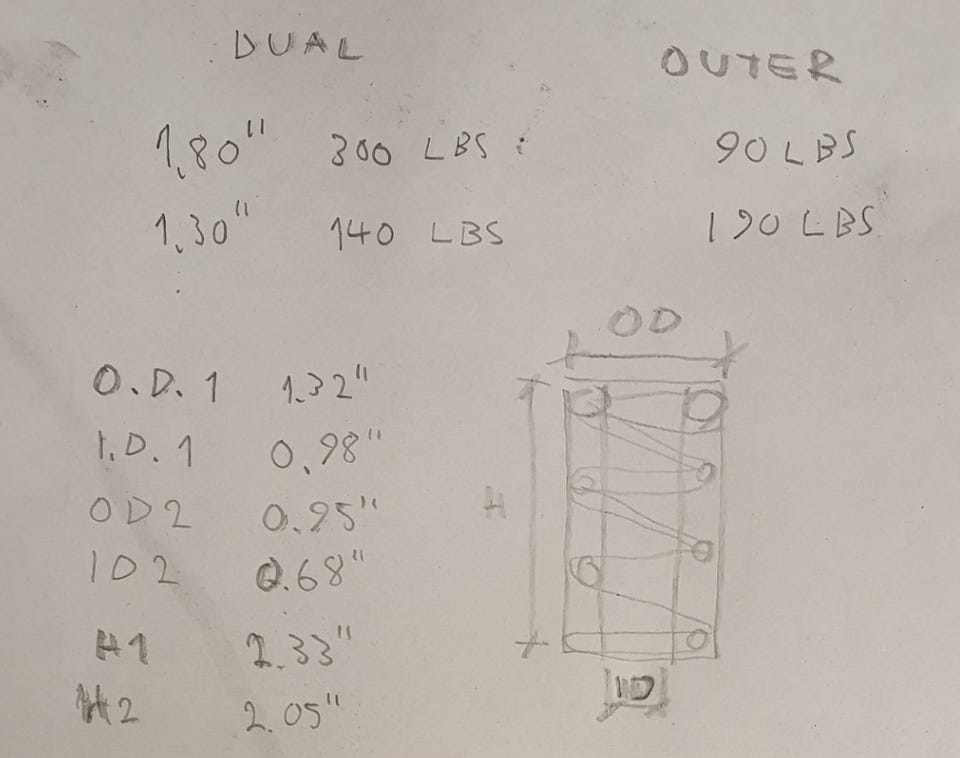 DUAL OUTER
1,80" 300 LBS 90 LBS
1,30" 140 LBS 190 LBS
OD
O.D.1 1.32"
I.D.1 0.98"
H
OD2 0.95"
ID2 0.68"
H1 2.33"
ID
H2 2.05"